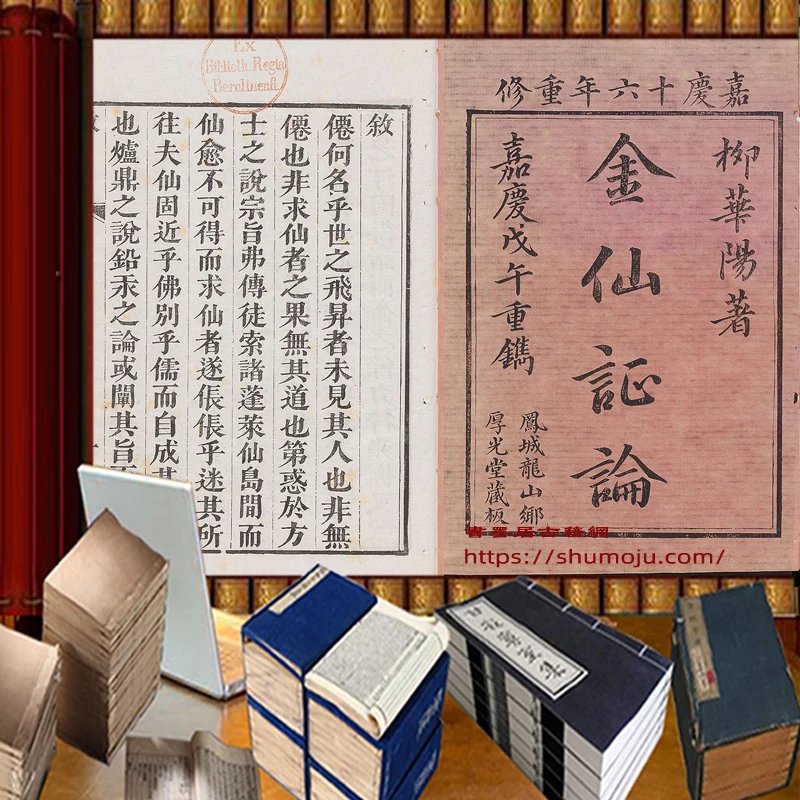 嘉慶十六年重修
柳華陽著
金仙証論
嘉慶戊午重鐫
鳳城龍山鄉
厚光堂藏板
敘
僊何名乎世之飛昇者未見其人也非無
僊也非求仙者之果無其道也第惑於方
士之說宗旨弗傳徒索諸蓬萊仙島間而
仙愈不可得而求仙者遂倀倀乎迷其所
往夫仙固近乎佛別乎儒而自成其
也爐鼎之說鉛汞之論或闡其旨
Ex
Biblioth. Regia
Berolinensi.
書墨居古籍網
https://shumoju.com/